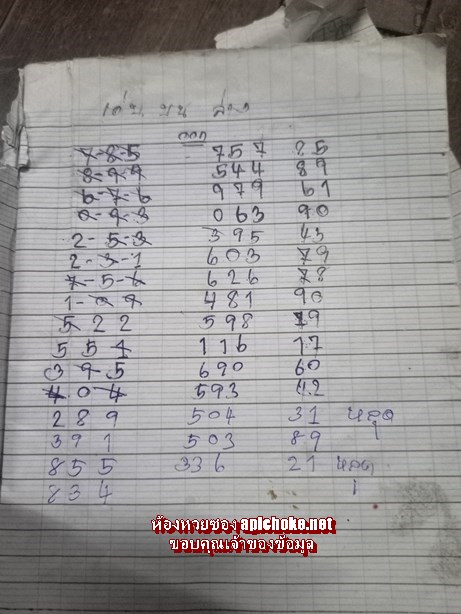 เด่น บน ล่าง
ออก
7-8-5 757 25
8-9-9 544 89
6-7-6 979 61
0-9-3 063 90
2-5-3 395 43
2-3-1 603 79
7-5-1 626 78
1-0-9 481 90
5 2 2 598 19
5 5 1 116 17
3 9 5 690 60
4 0 4 593 42
289 504 31 หลุด
391 503 89
855 336 21 หลุด
834
ห้องหวยซอง apichoke.net
ขอบคุณเจ้าของข้อมูล